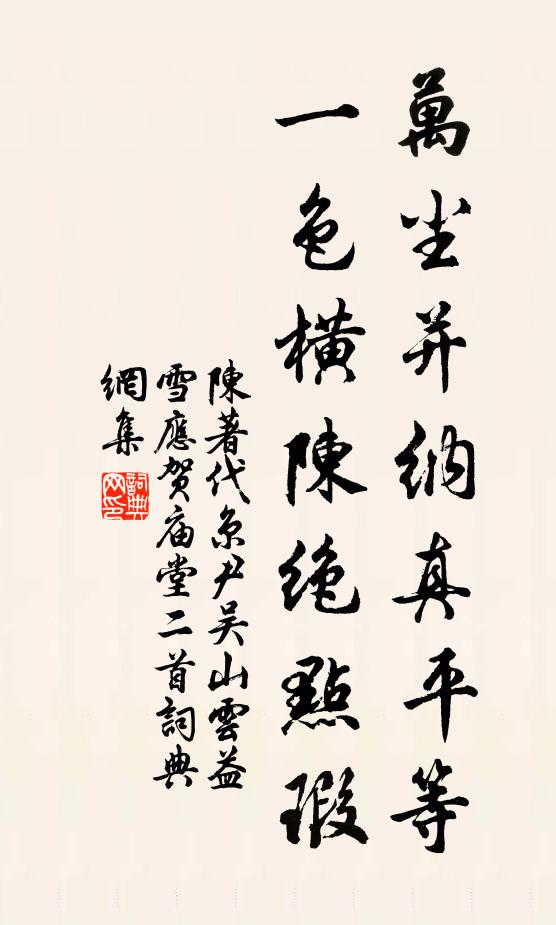 萬尘并納真平等
一色橫陳绝點瑕
陳著代京尹吴山雲益
雪應贺庙堂二首詞典
網集
詞典
网印